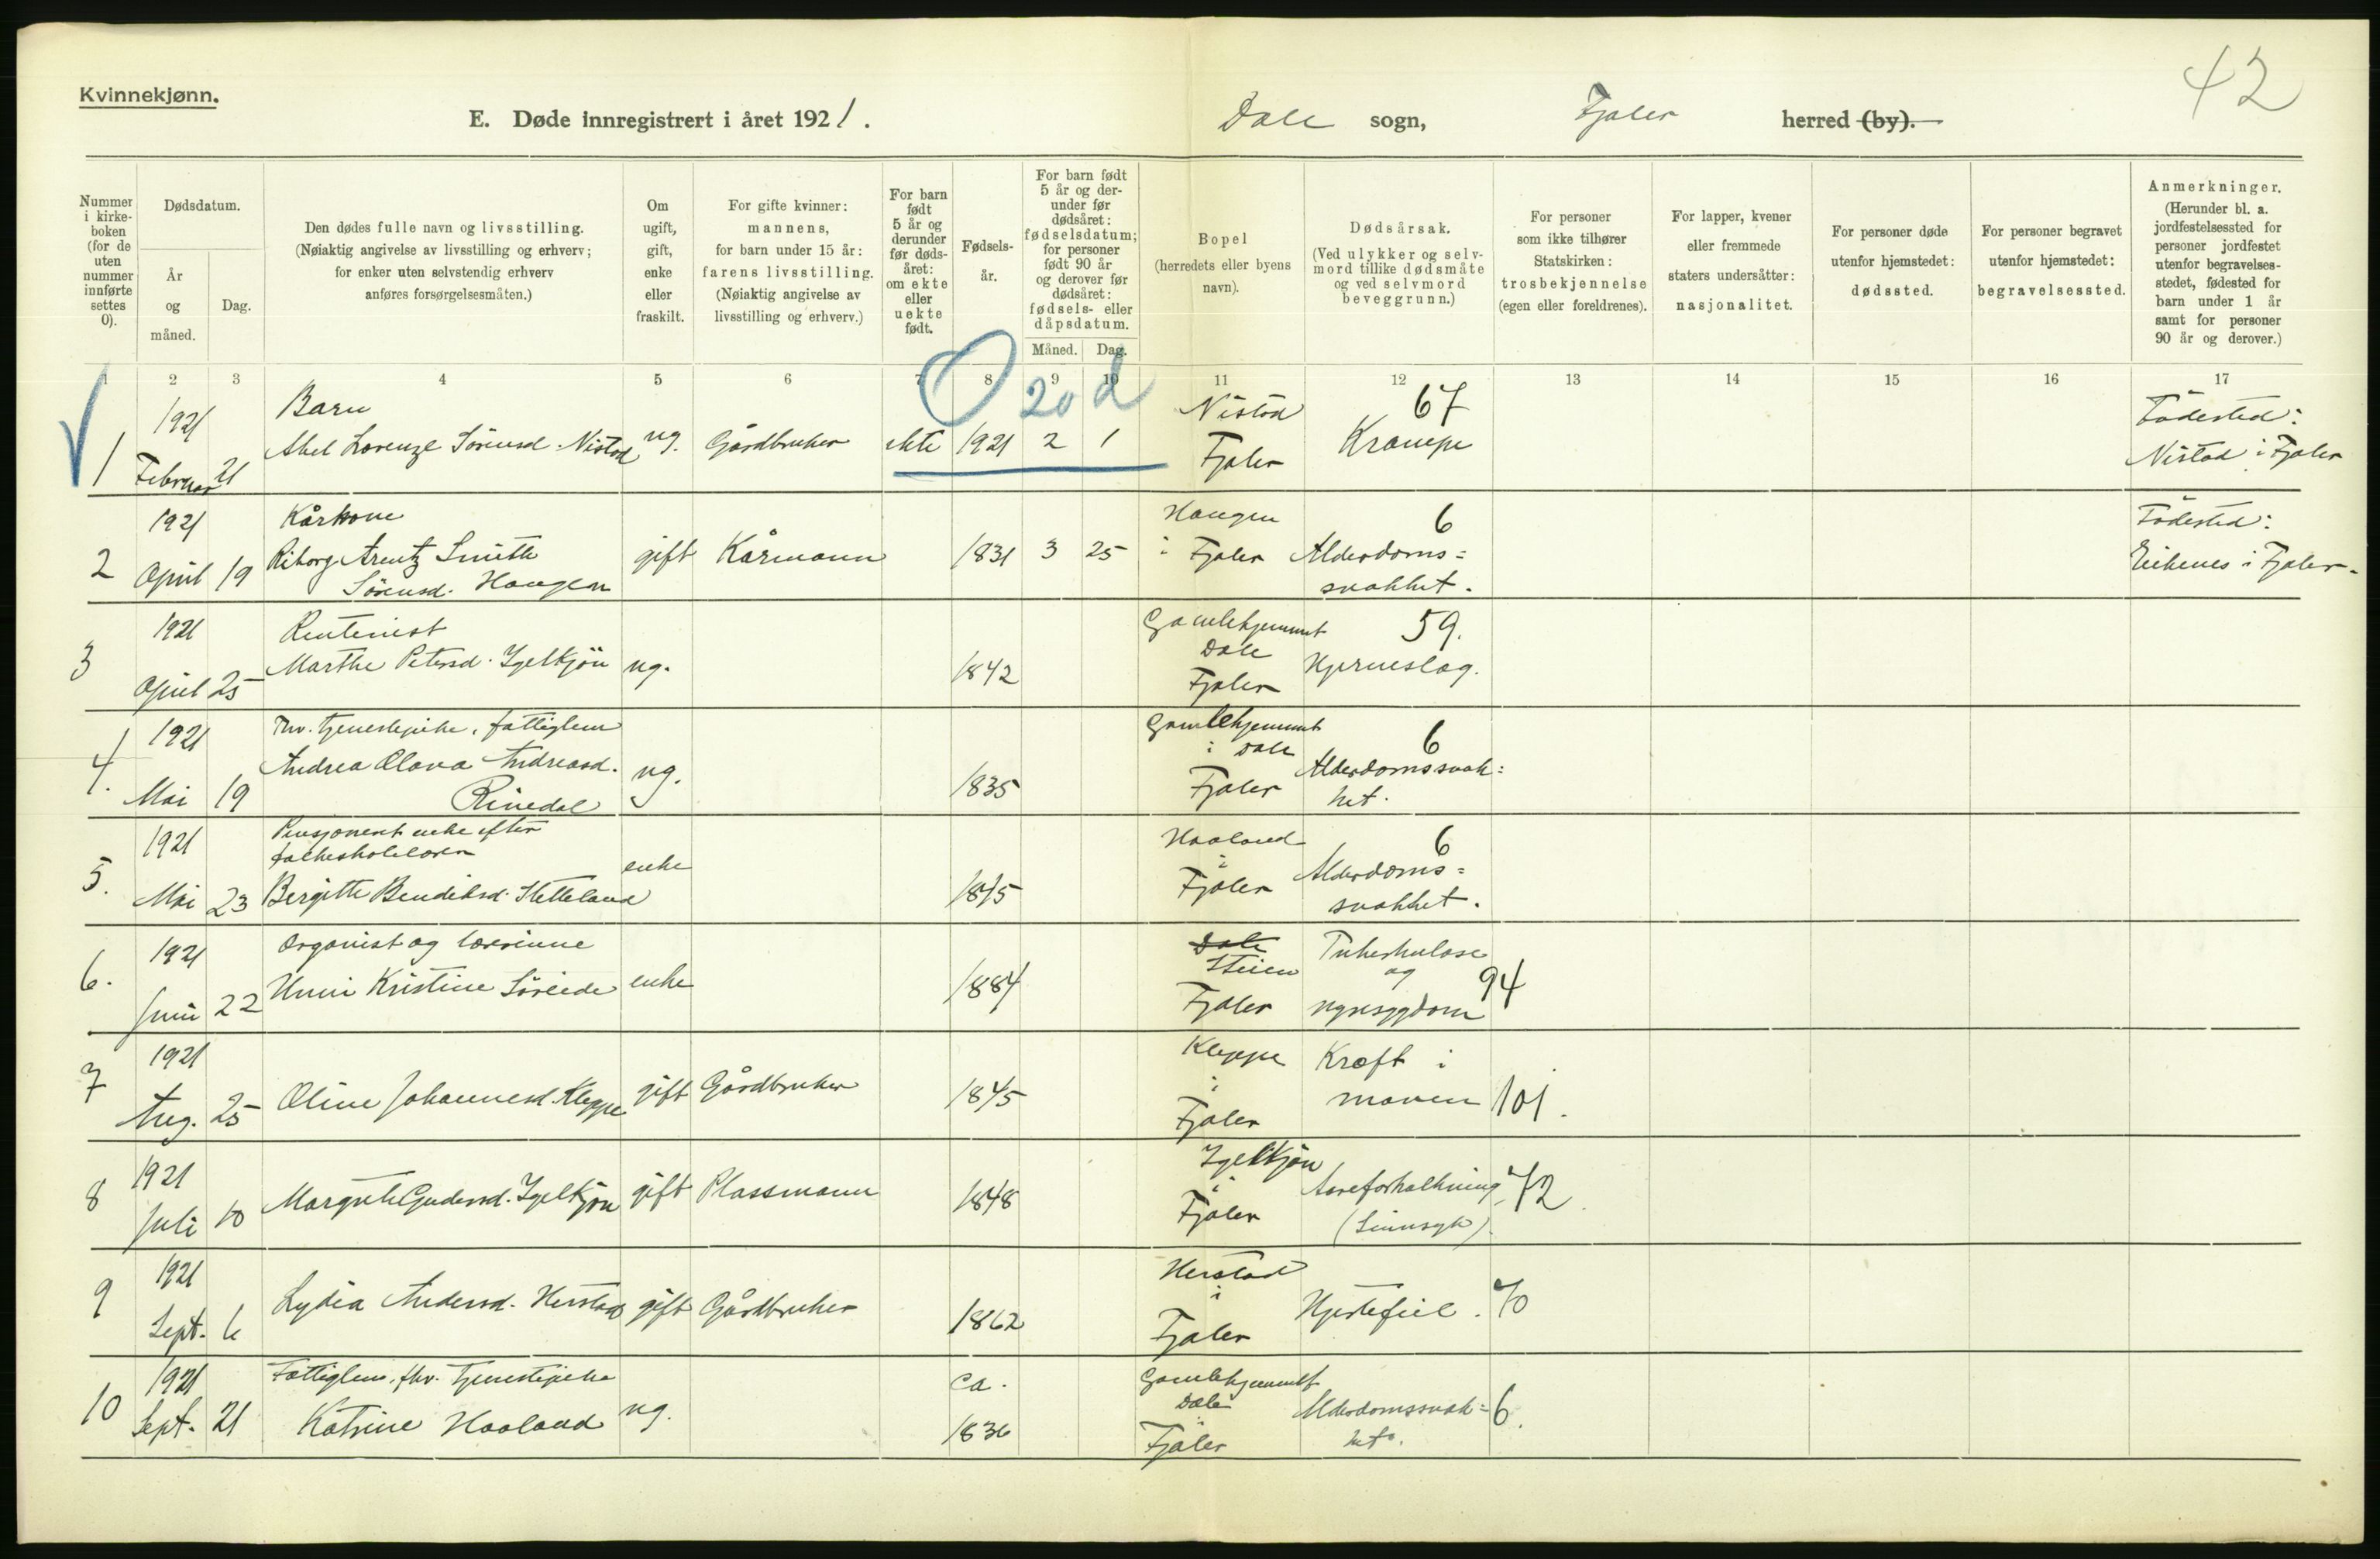 42
Kvinnekjønn.
E. Døde innregistrert i året 1921. Dale sogn, Fjaler herred (by).
Nummer i kirkeboken (for de uten nummer innførte settes 0).
Dødsdatum.
År og måned.
Dag.
Den dødes fulle navn og livsstilling.
(Nøiaktig angivelse av livsstilling og erhverv;
for enker uten selvstendig erhverv
anføres forsørgelsesmåten.)
Om ugift, gift, enke eller fraskilt.
For gifte kvinner:
mannens,
for barn under 15 år:
farens livsstilling.
(Nøiaktig angivelse av
livsstilling og erhverv.)
For barn født 5 år og derunder før dødsåret: om ekte eller uekte født.
Fødselsår.
For barn født 5 år og derunder før dødsåret: fødselsdatum; for personer født 90 år og derover før dødsåret: fødsels- eller dåpsdatum.
Måned. Dag.
Bopel
(herredets eller byens
navn).
Dødsårsak.
(Ved ulykker og selv-
mord tillike dødsmåte
og ved selvmord
beveggrunn.)
For personer
som ikke tilhører
Statskirken:
trosbekjennelse
(egen eller foreldrenes).
For lapper, kvener
eller fremmede
staters undersåtter:
nasjonalitet.
For personer døde
utenfor hjemstedet:
dødssted.
For personer begravet
utenfor hjemstedet:
begravelsessted.
Anmerkninger.
(Herunder bl. a.
jordfestelsessted for
personer jordfestet
utenfor begravelses-
stedet, fødested for
barn under 1 år
samt for personer
90 år og derover.)
1 2 3 4 5 6 7 8 9 10 11 12 13 14 15 16 17
20 d
1921 Barn Nistad 67 Födested:
1 Februar 21 Abel Lorenze Sörensd. Nistad ug. Gårdbruker ekte 1921 2 1 Fjaler Krampe Nistad i Fjaler
1921 Kårkone Haugen 6 Födested:
2 April 19 Riborg Arentz Smith gift Kårmann 1831 3 25 i Fjaler Alderdoms= Eikenes i Fjaler.
Sörensd. Haugen svakhet.
1921 Rentenist Gamlehjemmet 59.
3 April 25 Marthe Petersd. Igelkjön ug. 1842 Dale Fjaler Hjerneslag.
1921 Fhv. tjenestepike, fattiglem Gamlehjemmet 6
4. Mai 19 Andrea Olava Andreasd. ug. 1835 i Dale Fjaler Alderdomssvak=
Rinedal het.
1921 Pensjonert enke efter Haaland 6
folkeskolelærer
5. Mai 23 Bergitte Bendiksd. Hetleland enke 1845 i Fjaler Alderdoms=
svakhet.
1921 Organist og lærerinne Dale Tuberkulose
6. Juni 22 Unni Kristine Söreide enke 1884 Steien Fjaler og nyresygdom 94
1921 Kleppe Kræft i
7 Aug. 25 Oline Johannesd. Kleppe gift Gårdbruker 1845 i Fjaler maven 101.
1921 Igelkjön
8 Juli 10 Margrete Gudersd. Igelkjön gift Plassmann 1848 i Fjaler Aareforkalkning 72
(Sinnsyk).
1921 Herstad
9 Sept. 6 Lydia Andersd. Herstad gift Gårdbruker 1862 i Fjaler Hjertefeil. 70
1921 Fattiglem, fhv. tjenestepike ca. Gamlehjemmet
10 Sept. 21 Katrine Haaland ug. 1836 Dale Fjaler Alderdomssvak= 6.
het.